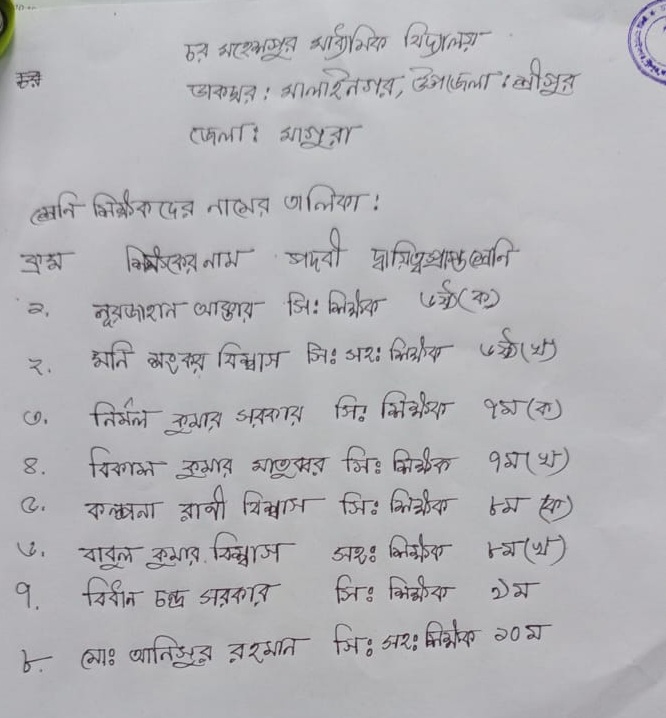 চর মহেশপুর মাধ্যমিক বিদ্যালয়
চর
ডাকঘর: মালাইনগর, উপজেলা: শ্রীপুর
জেলা: মাগুরা
শ্রেনি শিক্ষকদের নামের তালিকা:
ক্রম শিক্ষকের নাম পদবী দ্বায়িত্বপ্রাপ্ত শ্রেনি
১. নূরজাহান আক্তার সি: শিক্ষক ৬ষ্ঠ (ক)
২. মনি শংকর বিশ্বাস সি: সহ: শিক্ষক ৬ষ্ঠ (খ)
৩. নির্মল কুমার সরকার সি: শিক্ষক ৭ম (ক)
৪. বিকাশ কুমার মাতুব্বর সি: শিক্ষক ৭ম (খ)
৫. কল্পনা রানী বিশ্বাস সি: শিক্ষক ৮ম (ক)
৬. বাবুল কুমার বিশ্বাস সহ: শিক্ষক ৮ম (খ)
৭. বিধান চন্দ্র সরকার সি: শিক্ষক ৯ম
৮. মো: আনিসুর রহমান সি: সহ: শিক্ষক ১০ম